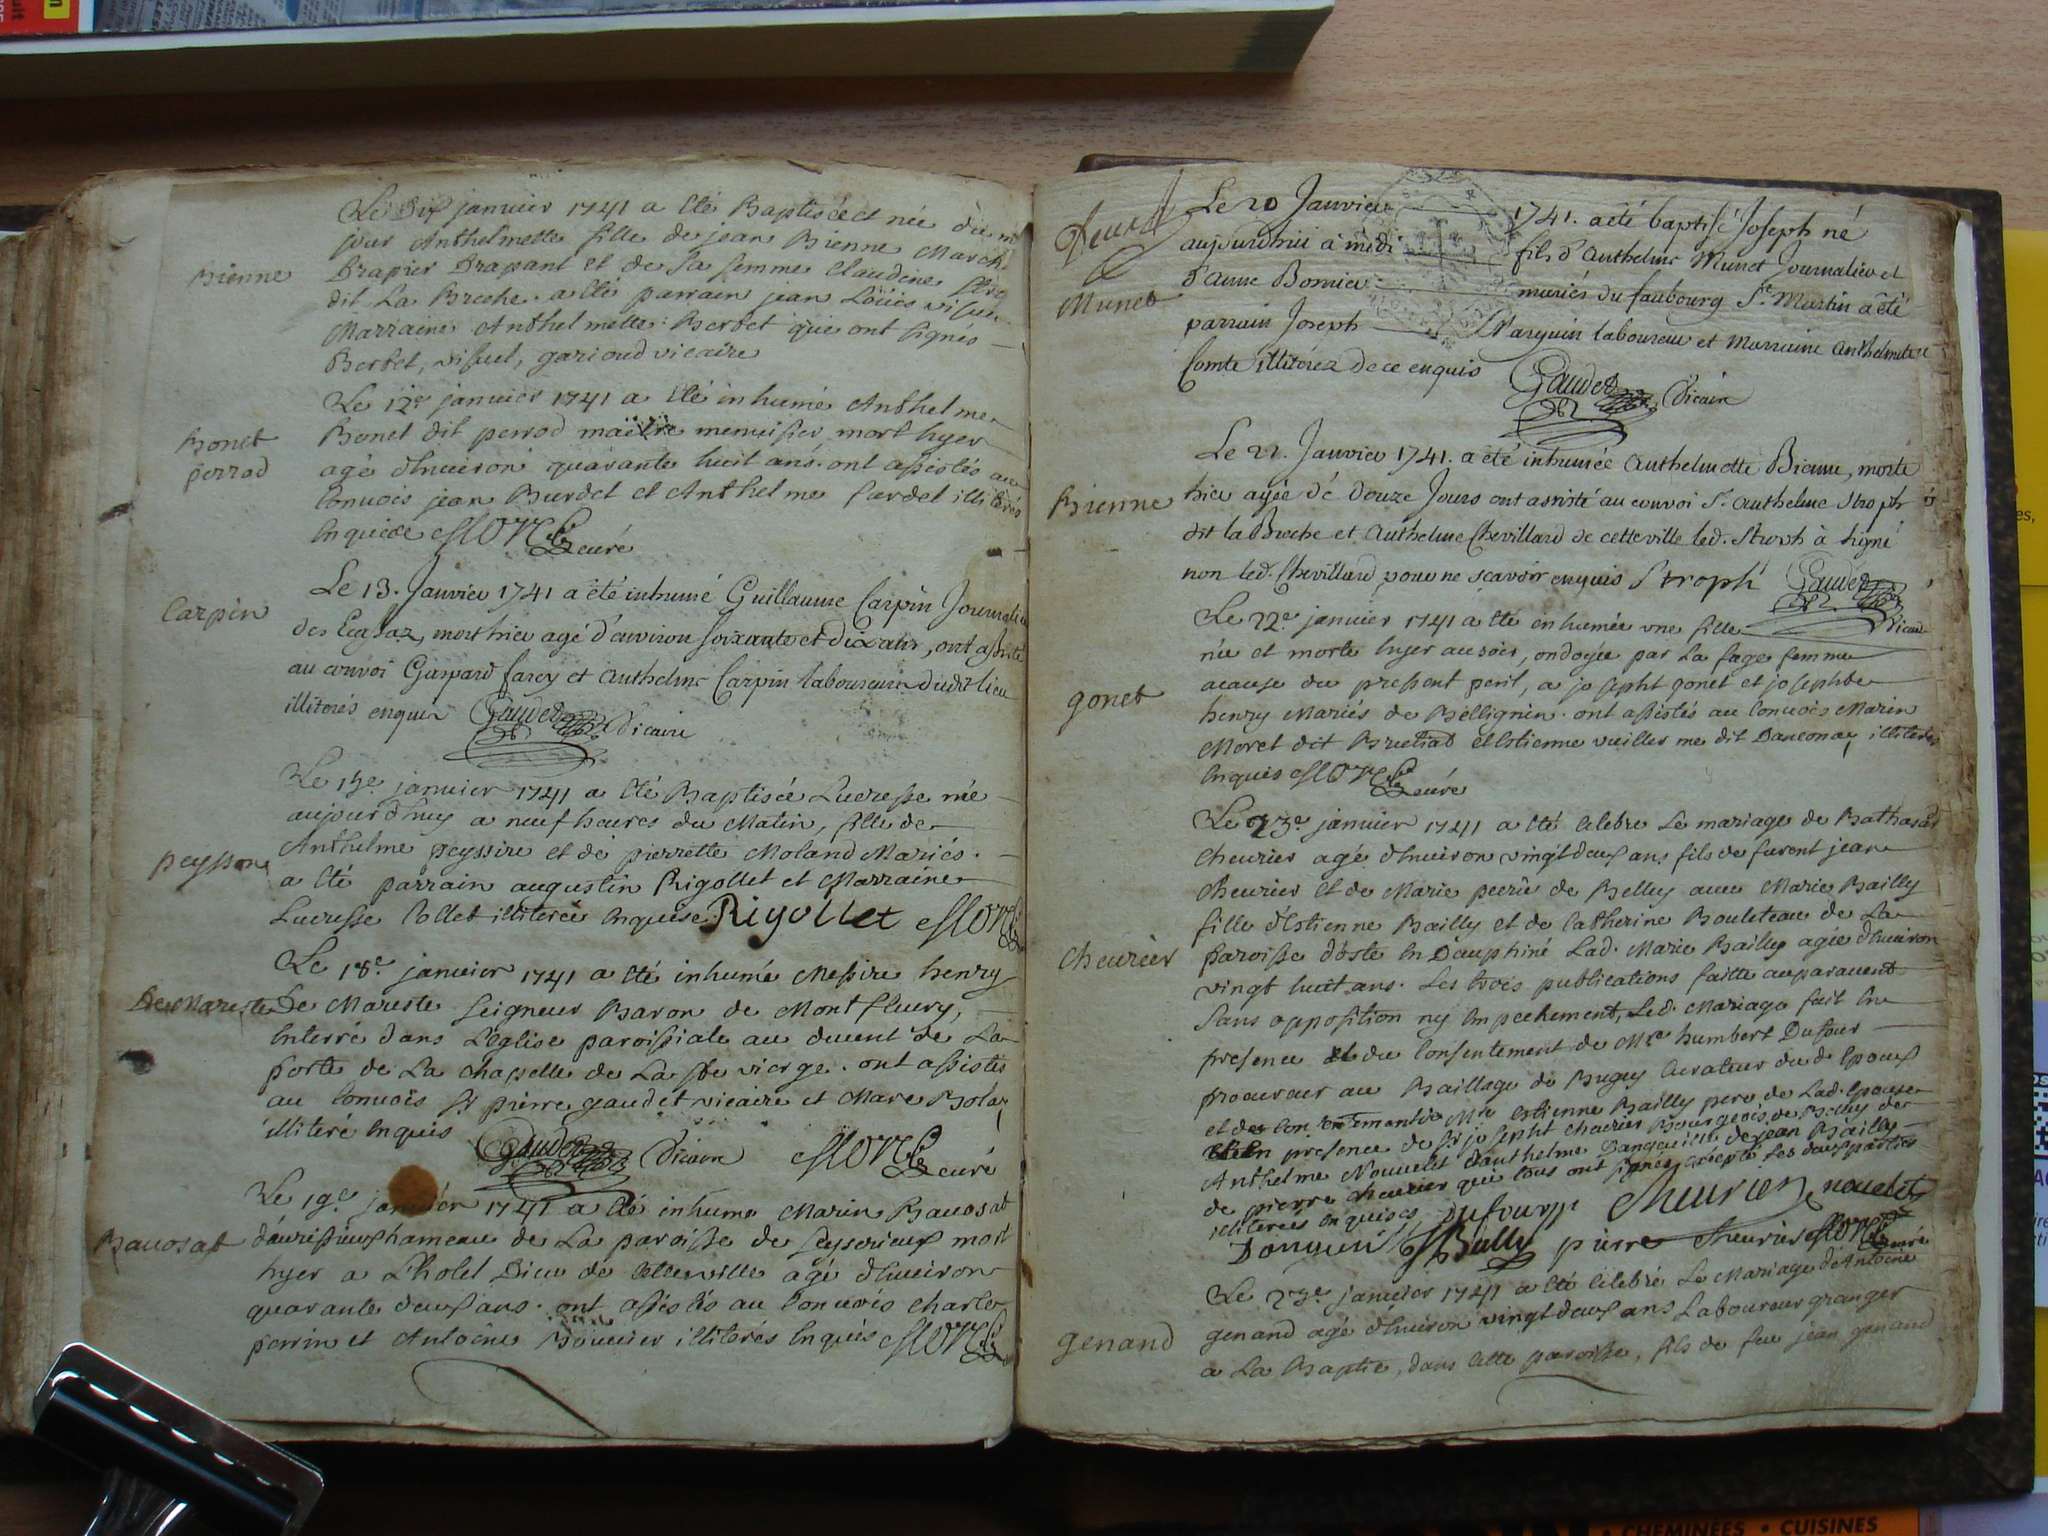 Le Dix janvier 1741 a été Baptisée et née du m
jour Anthelmette fille de jean Bienne March
Bienne
Drapier Drapant et de sa femme Claudine
dit La Broche. a été parrain jean Loüis visuel
Marraine Anthelmette Berbet qui ont signés
Berbet, visuel, garioud vicaire
Le 12e janvier 1741 a été inhumé Anthelme
Bonet perrod
Bonet dit perrod maitre menuisier mort hyer
agé d'Environ quarante huit ans. ont assistés au
Convois jean Burdet et Anthelme furdet illiterés
Enquise curé
Carpin
Le 13. Janvier 1741 a été inhumé Guillaume Carpin Journalie
des Ecassaz, mort hier agé d'environ soixante et dix ans, ont assisté
au convoi Gaspard farcy et Anthelme Carpin laboureurs dudit lieu
illiterés enquis Gaudet Vicaire
Le 15e janvier 1741 a été Baptisée Lucresse née
aujourd'huy a neuf heures du Matin, fille de
peyssone
Anthelme peyssire et de pierrette Moland Mariés.
a été parrain augustin Rigollet et Marraine
Lucresse Collet illiterée Enquise. Rigollet
Le 18e janvier 1741 a été inhumé Messire henry
De Mareste
De Mareste Seigneur Baron de Montfleury,
Enterré dans L'eglise paroissiale au devent de La
porte de La chapelle de La Ste vierge. ont assistés
au Convois Sr pierre gaudet vicaire et Marc Bolay
illiteré Enquis Gaudet Vicaire curé
Le 19e janvier 1741 a été inhumé Marin Bavosat
Bavosat
d'avrissieux hameau de La paroisse de Ceyserieux mort
hyer a L'hotel Dieu de Cetteville agé d'Environ
quarante deux ans. ont assistés au Convois charles
perrin et Antoine Bouvier illiterés Enquis
Le 20 Janvier 1741. a été baptisé Joseph né
aujourdhui à midi fils d'Anthelme Munet Journalier et
Munet
d'Anne Bonnier mariés du faubourg St Martin a été
parrain Joseph Parquin laboureur et Marraine Anthelmette
Comte illiterez de ce enquis Gaudet Vicaire
Le 22. Janvier 1741. a été inhumée Anthelmette Bienne, morte
Bienne
hier agée de douze Jours ont assisté au convoi Sr Anthelme Stroph
dit la Broche et Anthelme Chevillard de cette ville led. Stroph à signé
non led. Chevillard pour ne scavoir enquis Stroph Gaudet
Vicaire
Le 22e janvier 1741 a été inhumée une fille
née et morte hyer au soir, ondoyée par La sage femme
gonet
acause du pressent peril, a josepht gonet et josephte
henry Mariés de Bellignin. ont assistés au Convois Marin
Moret dit Brutiad et Estienne vuillerme dit Danconay illiterés
Enquis curé
Le 23e janvier 1741 a été Celebre Le mariage de Bathasard
cheurier agé d'Environ vingt deux ans fils de furent jean
cheurier et de Marie de Belley avec Marie Bailly
fille d'Estienne Bailly et de Catherine Bouleteau de La
cheurier
paroisse d'oste En Dauphiné Lad. Marie Bailly agée d'Environ
vingt huit ans. Les trois publications faitte auparavent
Sans opposition ny Empechement, Led. Mariage fait En
presence et du Consentement de Me humbert Dufour
procureur au Baillage de Bugey Curateur dud. Epoux
et du Consentement de Me Estienne Bailly pere de Lad. Epouse
et En presence de Sr josepht cheurier Bourgeois de Belley de
Anthelme Nouvelet d'anthelme Danguin de jean Bailly
de pierre cheurier qui tous ont signés excepté Les deux parties
illiterées Enquises Dufour Cheurier nouvelet
Danguin Bailly pierre cheurier curé
Le 23e janvier 1741 a été Celebré Le Mariage d'Antoine
genand
genand agé d'Environ vingt deux ans Laboureur granger
a La Baptie, dans Cette paroisse, fils de feu jean genand
CHEMINÉES • CUISINES